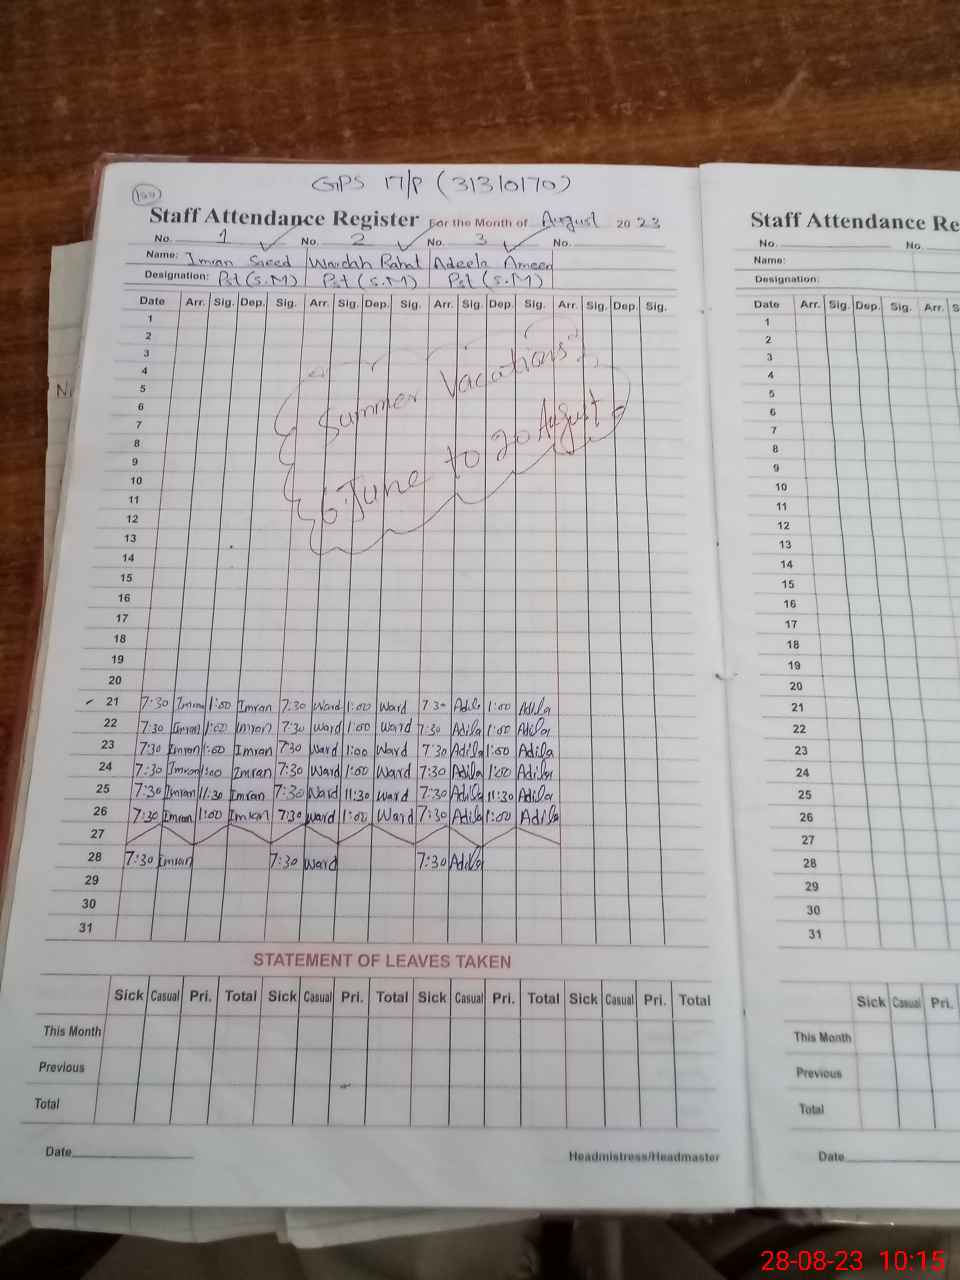 GPS 17/P (31310170)
Staff Attendance Register For the Month of August 20 23
No. 1 No. 2 No. 3 No.
Name: Imran Saeed Wardah Rahat Adeela Ameen
Designation: Pst (S.M) Pst (S.M) Pst (S.M)
Date Arr. Sig. Dep. Sig. Arr. Sig. Dep. Sig. Arr. Sig. Dep. Sig. Arr. Sig. Dep. Sig.
1
2
3
4
5
6
7
8
9
10
11
12
13
14
15
16
17
18
19
20
Summer Vacations
6 June to 20 August
21 7:30 Imran 1:00 Imran 7:30 Ward 1:00 Ward 7:30 Adila 1:00 Adila
22 7:30 Imran 1:00 Imran 7:30 Ward 1:00 Ward 7:30 Adila 1:00 Adila
23 7:30 Imran 1:00 Imran 7:30 Ward 1:00 Ward 7:30 Adila 1:00 Adila
24 7:30 Imran 1:00 Imran 7:30 Ward 1:00 Ward 7:30 Adila 1:00 Adila
25 7:30 Imran 11:30 Imran 7:30 Ward 11:30 Ward 7:30 Adila 11:30 Adila
26 7:30 Imran 1:00 Imran 7:30 Ward 1:00 Ward 7:30 Adila 1:00 Adila
27
28 7:30 Imran 7:30 Ward 7:30 Adila
29
30
31
STATEMENT OF LEAVES TAKEN
Sick Casual Pri. Total Sick Casual Pri. Total Sick Casual Pri. Total Sick Casual Pri. Total
This Month
Previous
Total
Date
Headmistress/Headmaster
Staff Attendance Re
No. No.
Name:
Designation:
Date Arr. Sig. Dep. Sig. Arr. S
1
2
3
4
5
6
7
8
9
10
11
12
13
14
15
16
17
18
19
20
21
22
23
24
25
26
27
28
29
30
31
Sick Casual Pri.
This Month
Previous
Total
Date
28-08-23 10:15